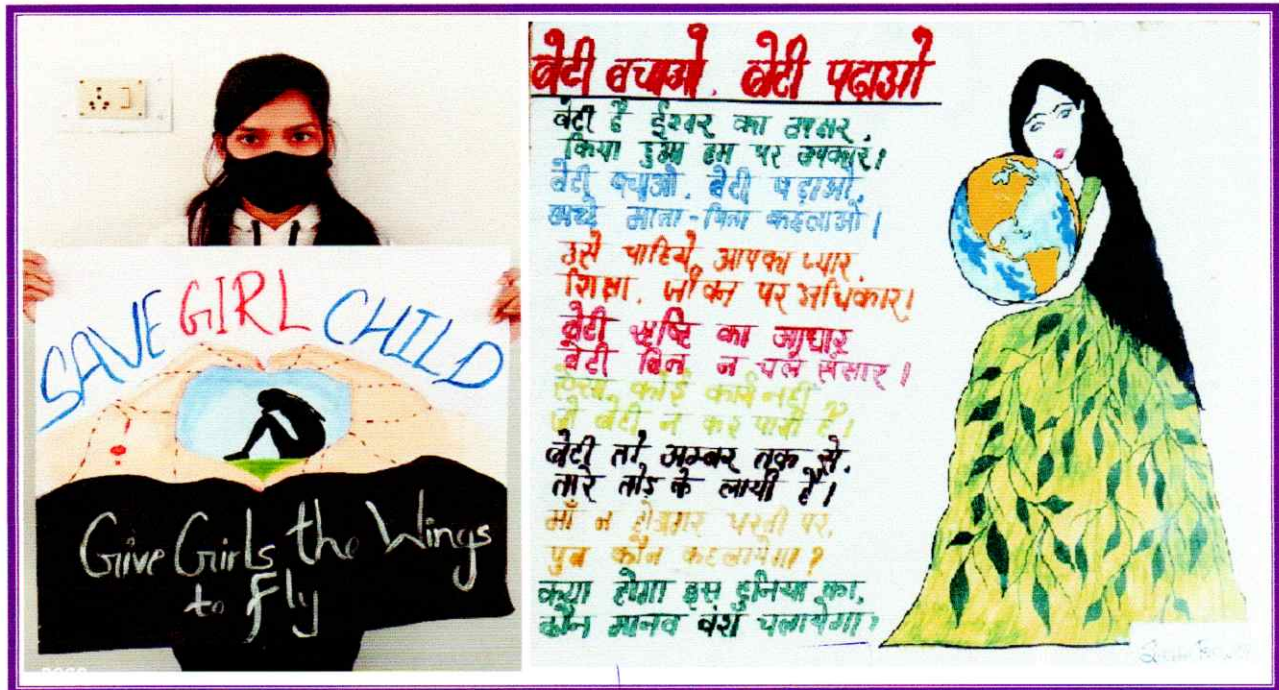 SAVE GIRL CHILD
Give Girls the Wings
to fly
बेटी बचाओ, बेटी पढाओ
बेटी है ईश्वर का
किया हम पर उपकार।
बेटी बचाओ, बेटी पढ़ाओ,
अच्छे माता-पिता कहलाओ।
उसे चाहिये आपका प्यार,
शिक्षा, जीवन पर अधिकार।
बेटी सृष्टि का आधार
बेटी बिन न चले संसार।
ऐसा कोई कार्य नहीं
जो बेटी न कर पायी है।
बेटी तो अम्बर तक से,
तारे तोड़ के लायी है।
माँ न होअगर धरती पर,
पुत्र कौन कहलायेगा?
क्या होगा इस दुनिया का,
कौन मानव वंश चलायेगा?